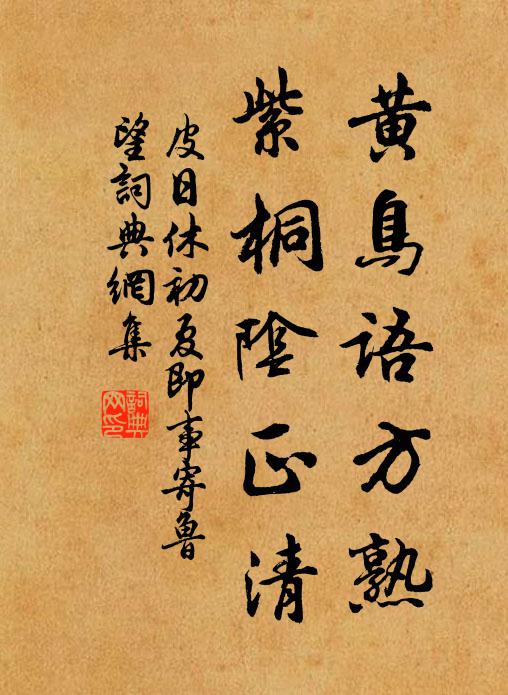 黃鳥語方熟
紫桐陰正清
皮日休初夏即事寄魯
望詞典網集
詞典
网印